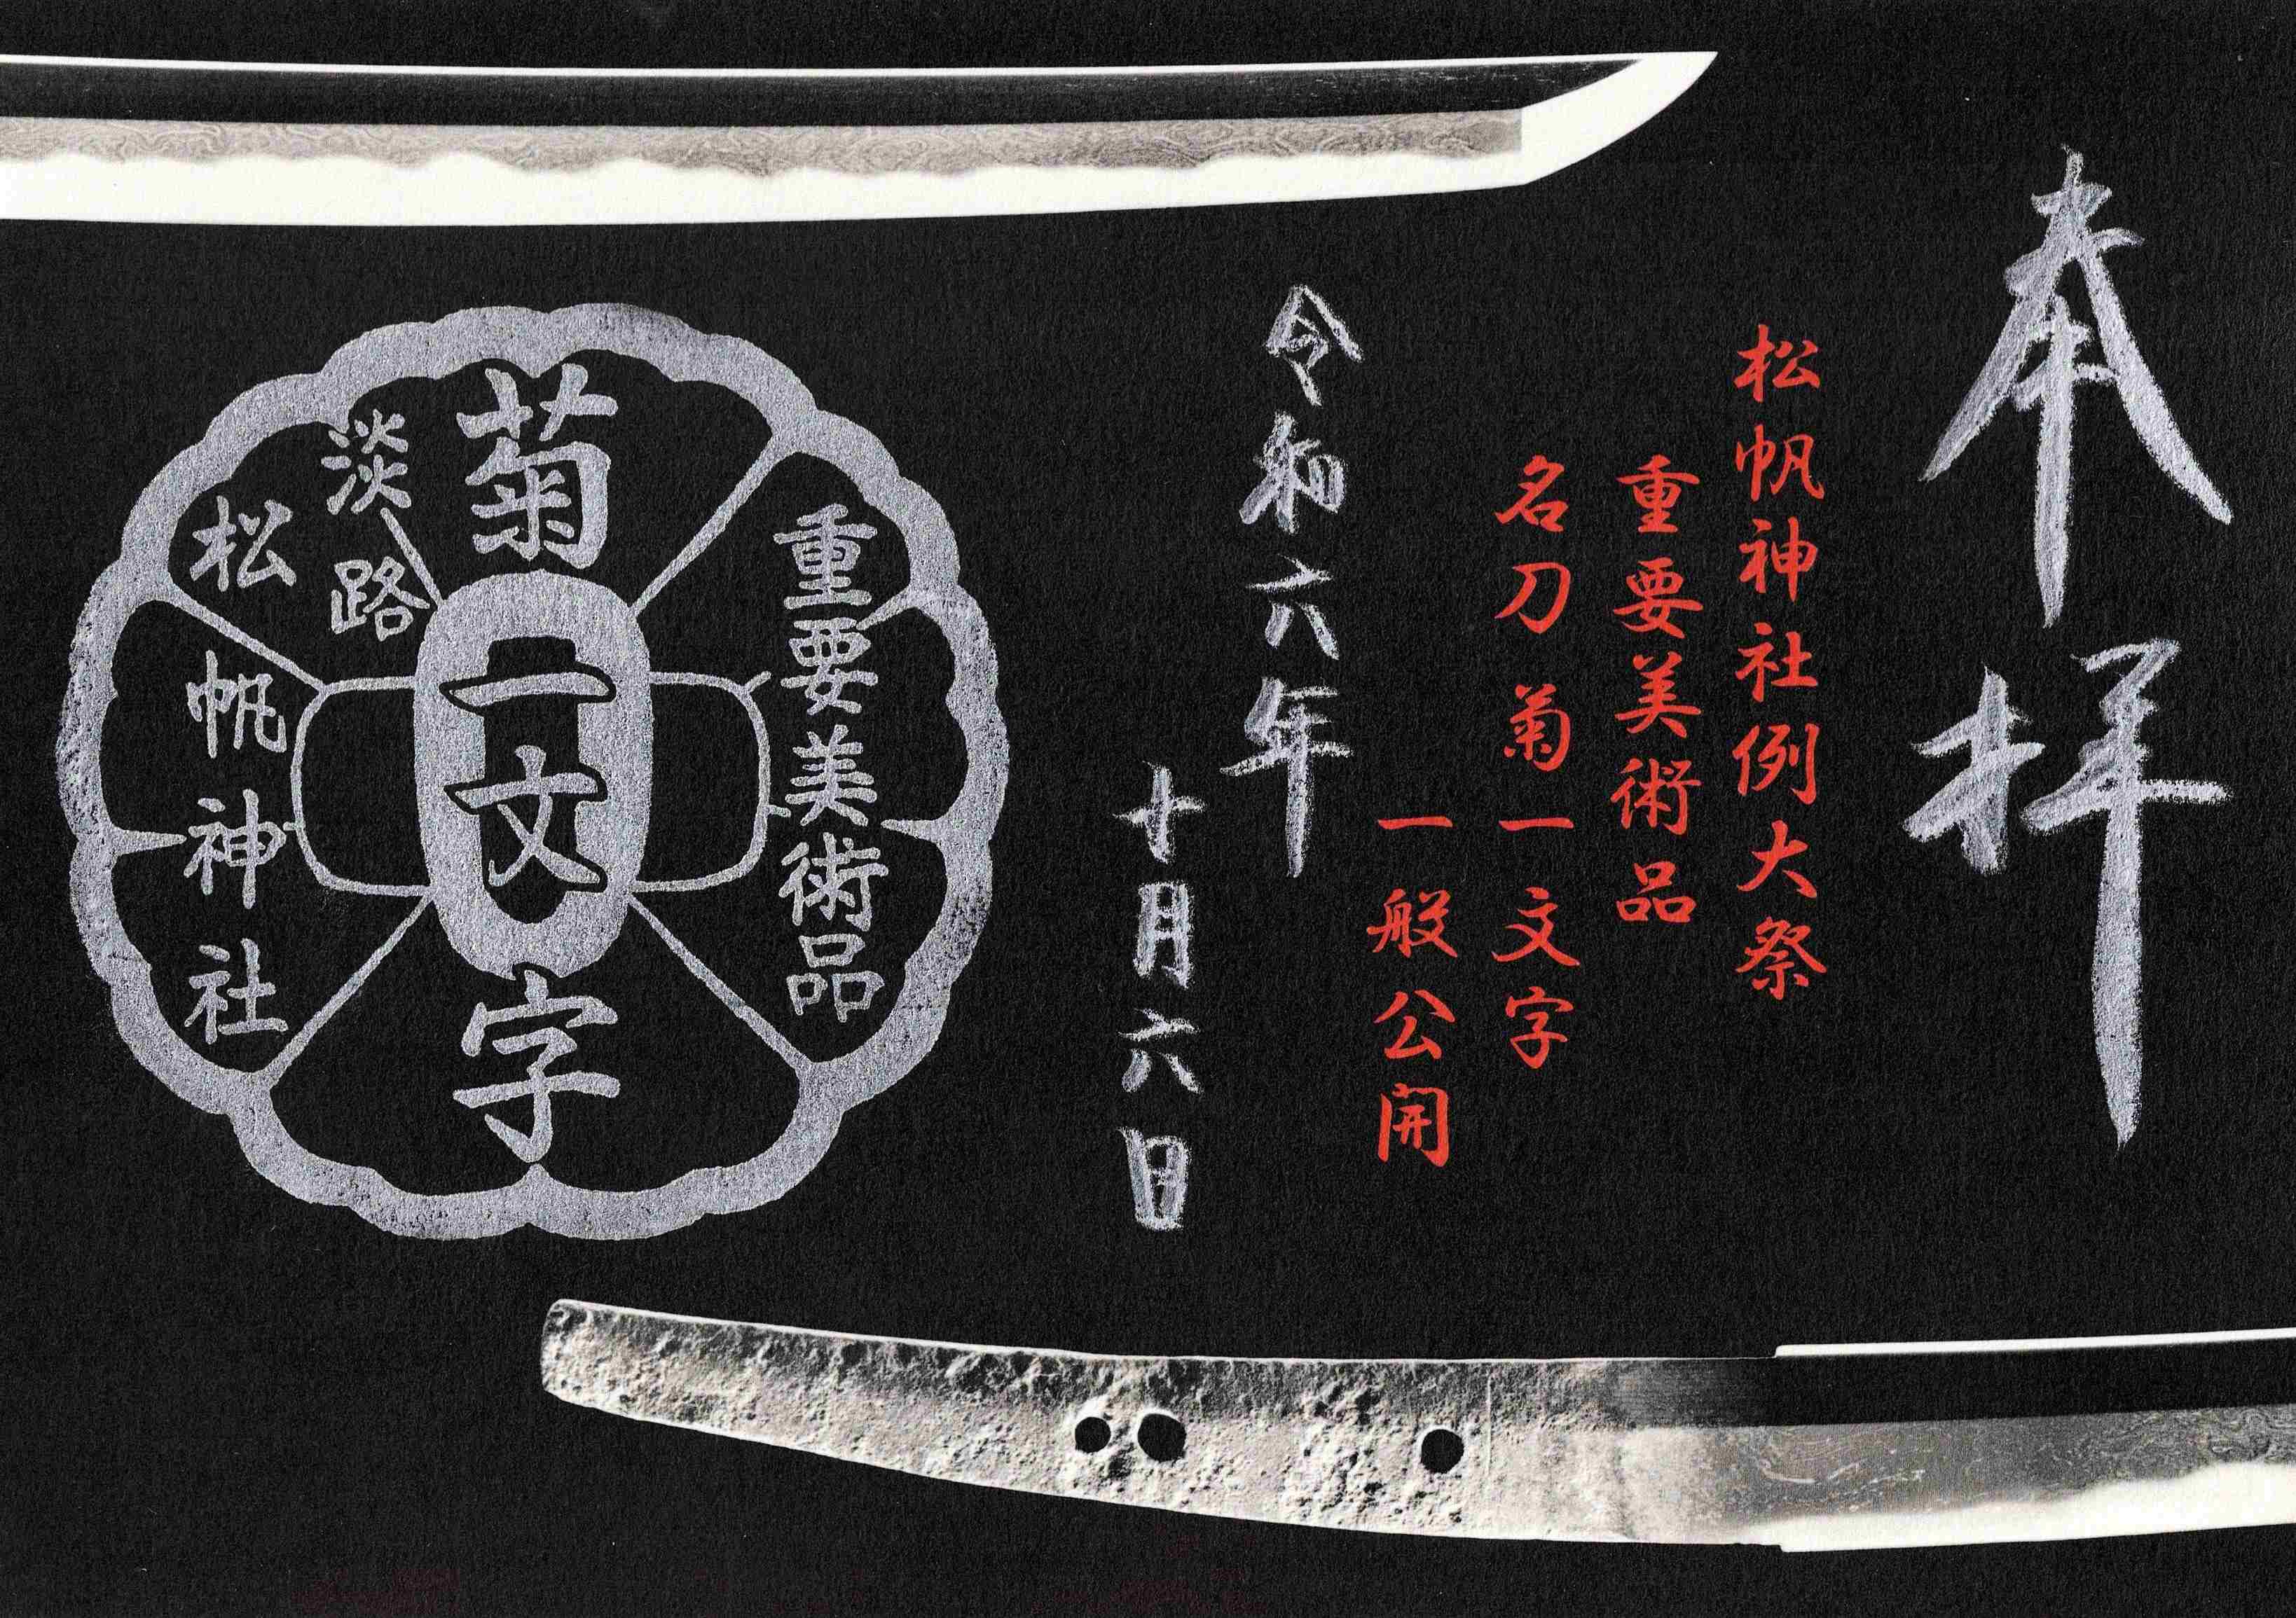 奉拝
松帆神社例大祭
重要美術品
名刀菊一文字
一般公開
令和六年
十月六日
重要美術品
菊一文字
淡路
松帆神社